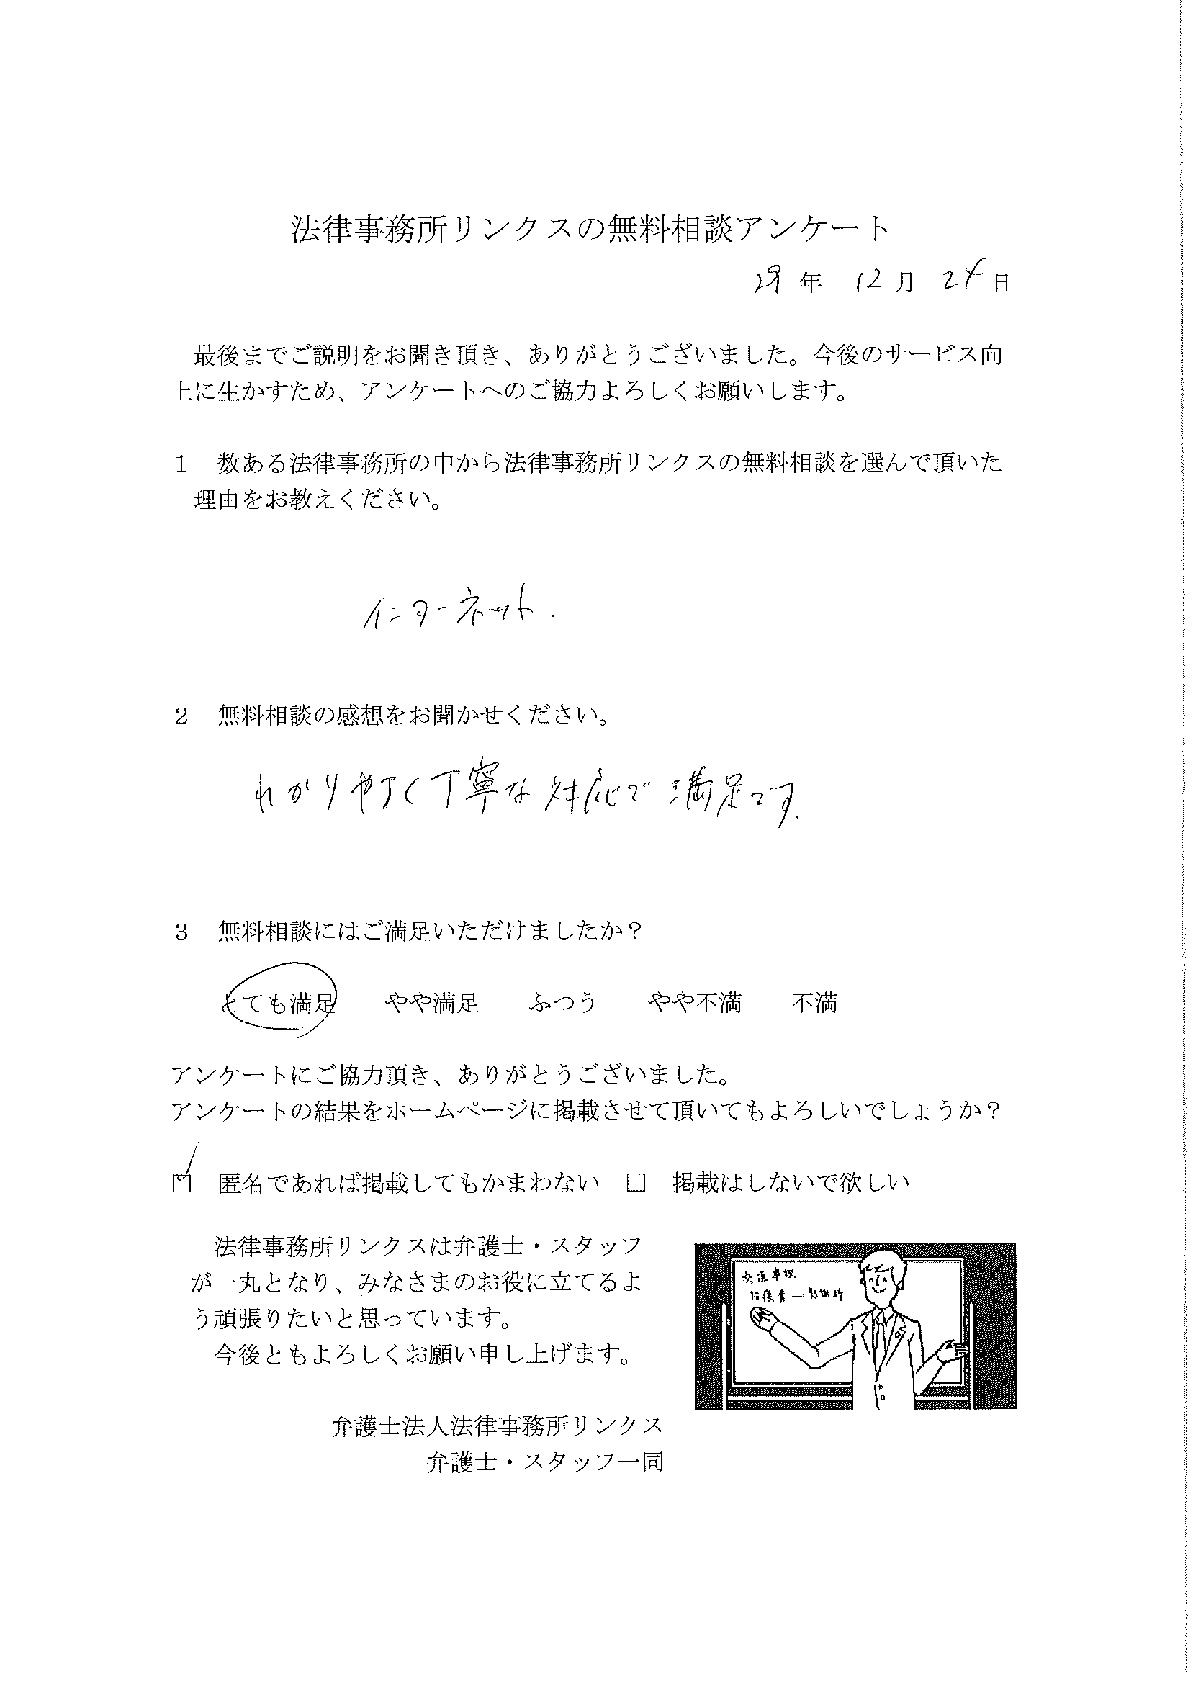 法律事務所リンクスの無料相談アンケート
29年 12月 24日
最後までご説明をお聞き頂き、ありがとうございました。今後のサービス向
上に生かすため、アンケートへのご協力よろしくお願いします。
1 数ある法律事務所の中から法律事務所リンクスの無料相談を選んで頂いた
理由をお教えください。
インターネット.
2 無料相談の感想をお聞かせください。
わかりやすく丁寧な対応で満足です.
3 無料相談にはご満足いただけましたか？
とても満足 やや満足 ふつう やや不満 不満
アンケートにご協力頂き、ありがとうございました。
アンケートの結果をホームページに掲載させて頂いてもよろしいでしょうか？
☑ 匿名であれば掲載してもかまわない □ 掲載はしないで欲しい
法律事務所リンクスは弁護士・スタッフ
が一丸となり、みなさまのお役に立てるよ
う頑張りたいと思っています。
今後ともよろしくお願い申し上げます。
交通事故
弁護士法人法律事務所リンクス
弁護士・スタッフ一同